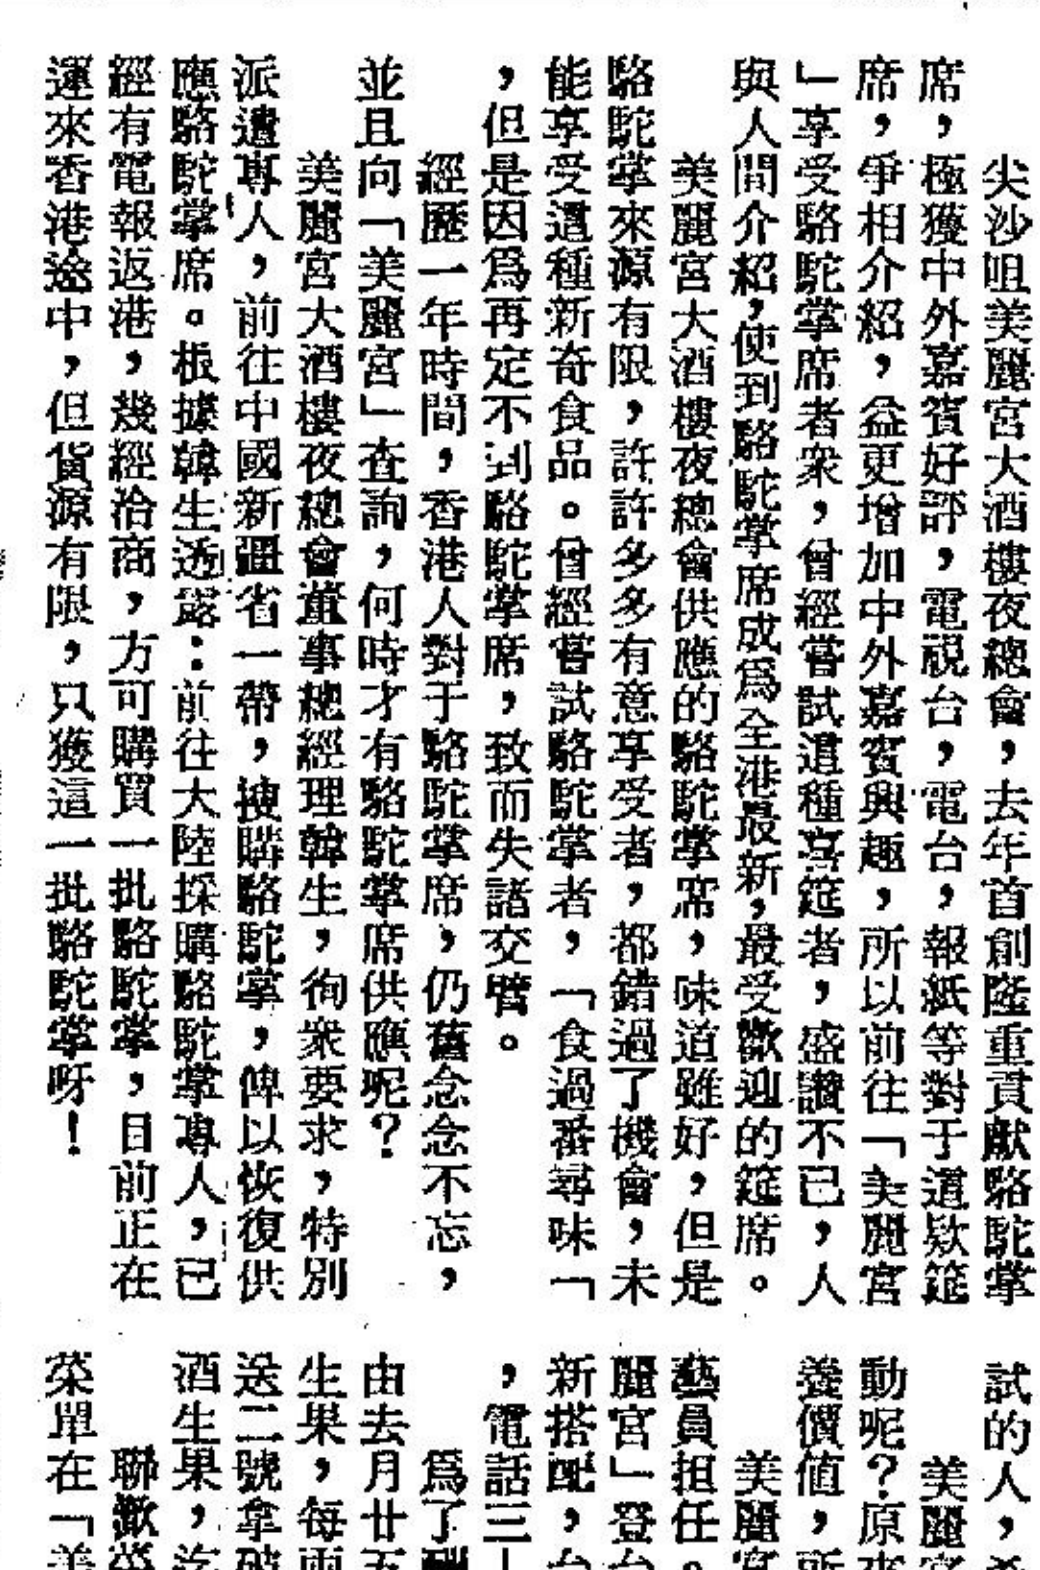 尖沙咀美麗宮大酒樓夜總會，去年首創隆重貢獻駱駝掌
席，極獲中外嘉賓好評，電視台，電台，報紙等對于這欵筵
席，爭相介紹，益更增加中外嘉賓興趣，所以前往「美麗宮
」享受駱駝掌席者衆，曾經嘗試這種喜筵者，盛讚不已，人
與人間介紹，使到駱駝掌席成爲全港最新，最受歡迎的筵席。
美麗宮大酒樓夜總會供應的駱駝掌席，味道雖好，但是
駱駝掌來源有限，許許多多有意享受者，都錯過了機會，未
能享受這種新奇食品。曾經嘗試駱駝掌者，「食過番尋味「
，但是因爲再定不到駱駝掌席，致而失諸交臂。
經歷一年時間，香港人對于駱駝掌席，仍舊念念不忘，
並且向「美麗宮」查詢，何時才有駱駝掌席供應呢？
美麗宮大酒樓夜總會董事總經理韓生，徇衆要求，特別
派遣專人，前往中國新疆省一帶，搜購駱駝掌，俾以恢復供
應駱駝掌席。根據韓生透露：前往大陸採購駱駝掌專人，已
經有電報返港，幾經洽商，方可購買一批駱駝掌，目前正在
運來香港途中，但貨源有限，只獲這一批駱駝掌呀！
試的人，
美麗
動呢？原來
養價值，所
美麗宮
藝員担任。
麗宮」登台
新搭配，台
，電話三
爲了酬
由去月廿五
生果，每兩
送二號拿破
酒生果，迄
聯歡菜
菜單在「美